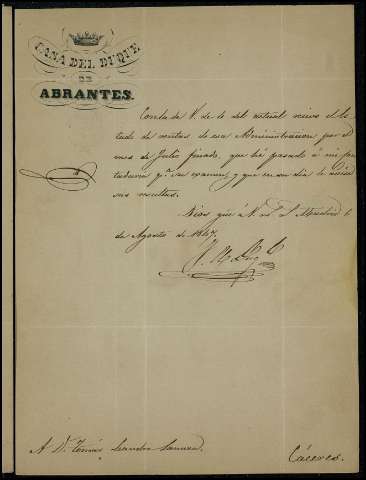 CASA DEL DUQUE
DE
ABRANTES.
Con la de V. de 4 del actual recivo el Es
tado de ventas de esa Administracion por el
mes de Julio finado, que hé pasado á mi Con
taduria pª su examen, y que en su dia le avisará
sus resultas.
Dios gue á V. ms. as. Madrid 6
de Agosto de 1847.
A Dn. Tomás Leandro
Cáceres.